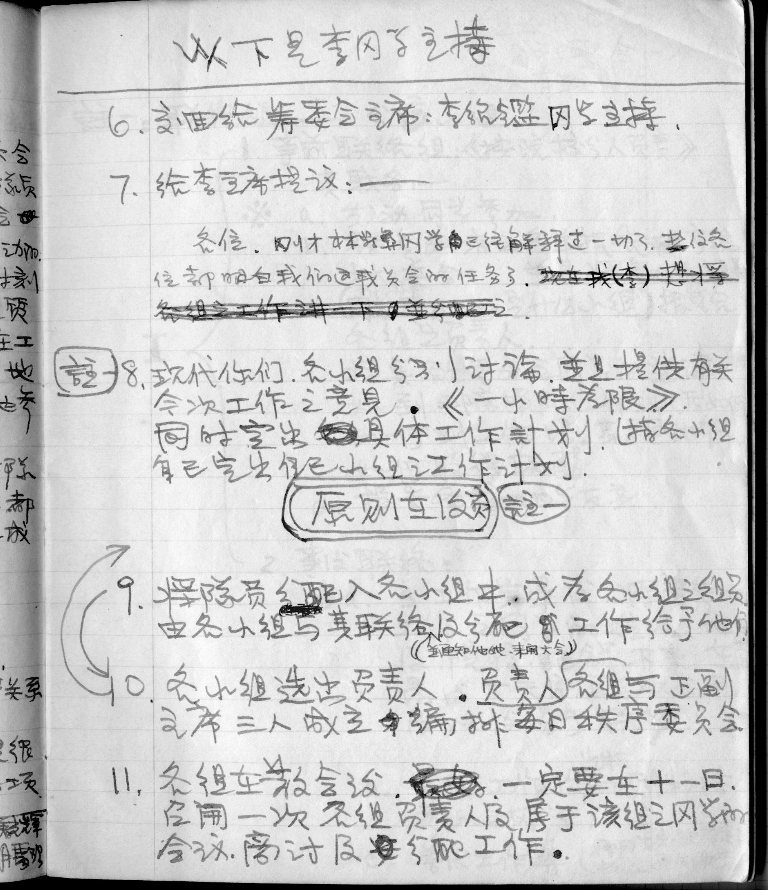 以下是李冈学主持
6. 交回给筹委会主席:李绍鑑冈学主持.
7. 给李主席提议:——
各位. 刚才林冈学自己经解释过一切了. 各
位都明白我们这我关会的任务了. 现在我(李)想将
各组之工作讲一下
註一
8. 现代你们. 各小组分别讨论. 並且提供有关
今次工作之意见. 《一小時为限》.
同时定出具体工作計划. (指各小组
自己定出自己小组之工作计划.
原则在後頁 註一
9. 将隊员分配入各小组中. 成为各小组之组员
由各小组与其联络及分配工作给予他们
((並通知他她来開大会))
10. 各小组选出负责人. 负责人各组与正副
主席三人成立编排每日秩序委员会
11. 各组在散会後. 一定要在十一日.
召開一次各组负责人及属于该组之冈学的
会议. 商讨及分配工作.
会
工
地
都
成
关系